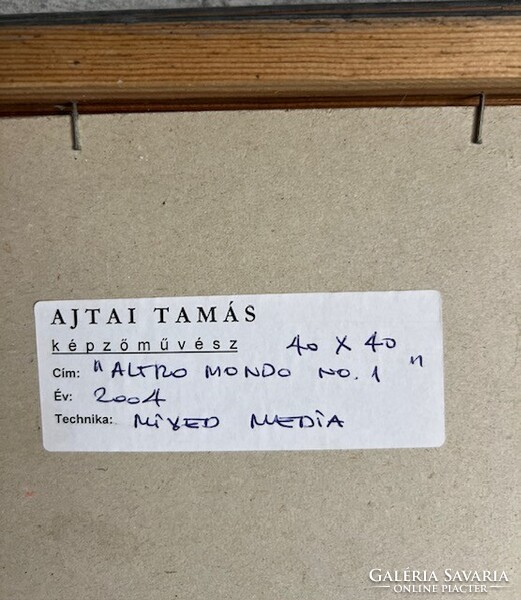 AJTAI TAMÁS
képzőművész 40 x 40
Cím: "ALTRO MONDO NO. 1"
Év: 2004
Technika: MIXED MEDIA
GALÉRIA SAVARIA
ONLINE PIACTÉR